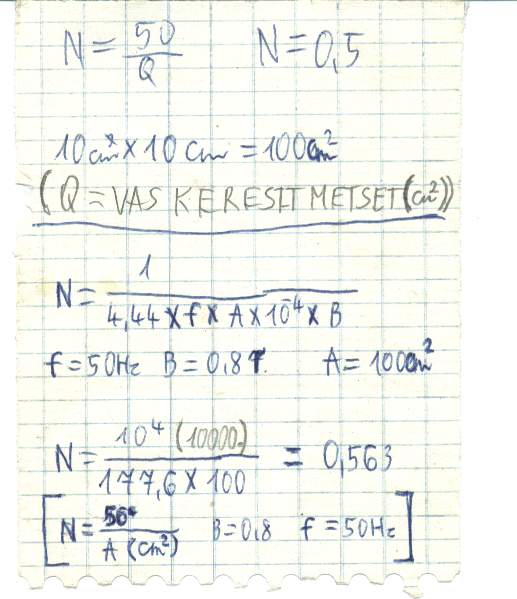 N = 50/Q N = 0,5
10 cm² x 10 cm = 100 cm²
(Q = VAS KERESZTMETSET (cm²))
N = 1 / 4,44 x f x A x 10⁻⁴ x B
f = 50Hz B = 0,8 T. A = 100 cm²
N = 10⁴ (10000) / 177,6 x 100 = 0,563
[N = 56 / A (cm²) B = 0,8 f = 50Hz]